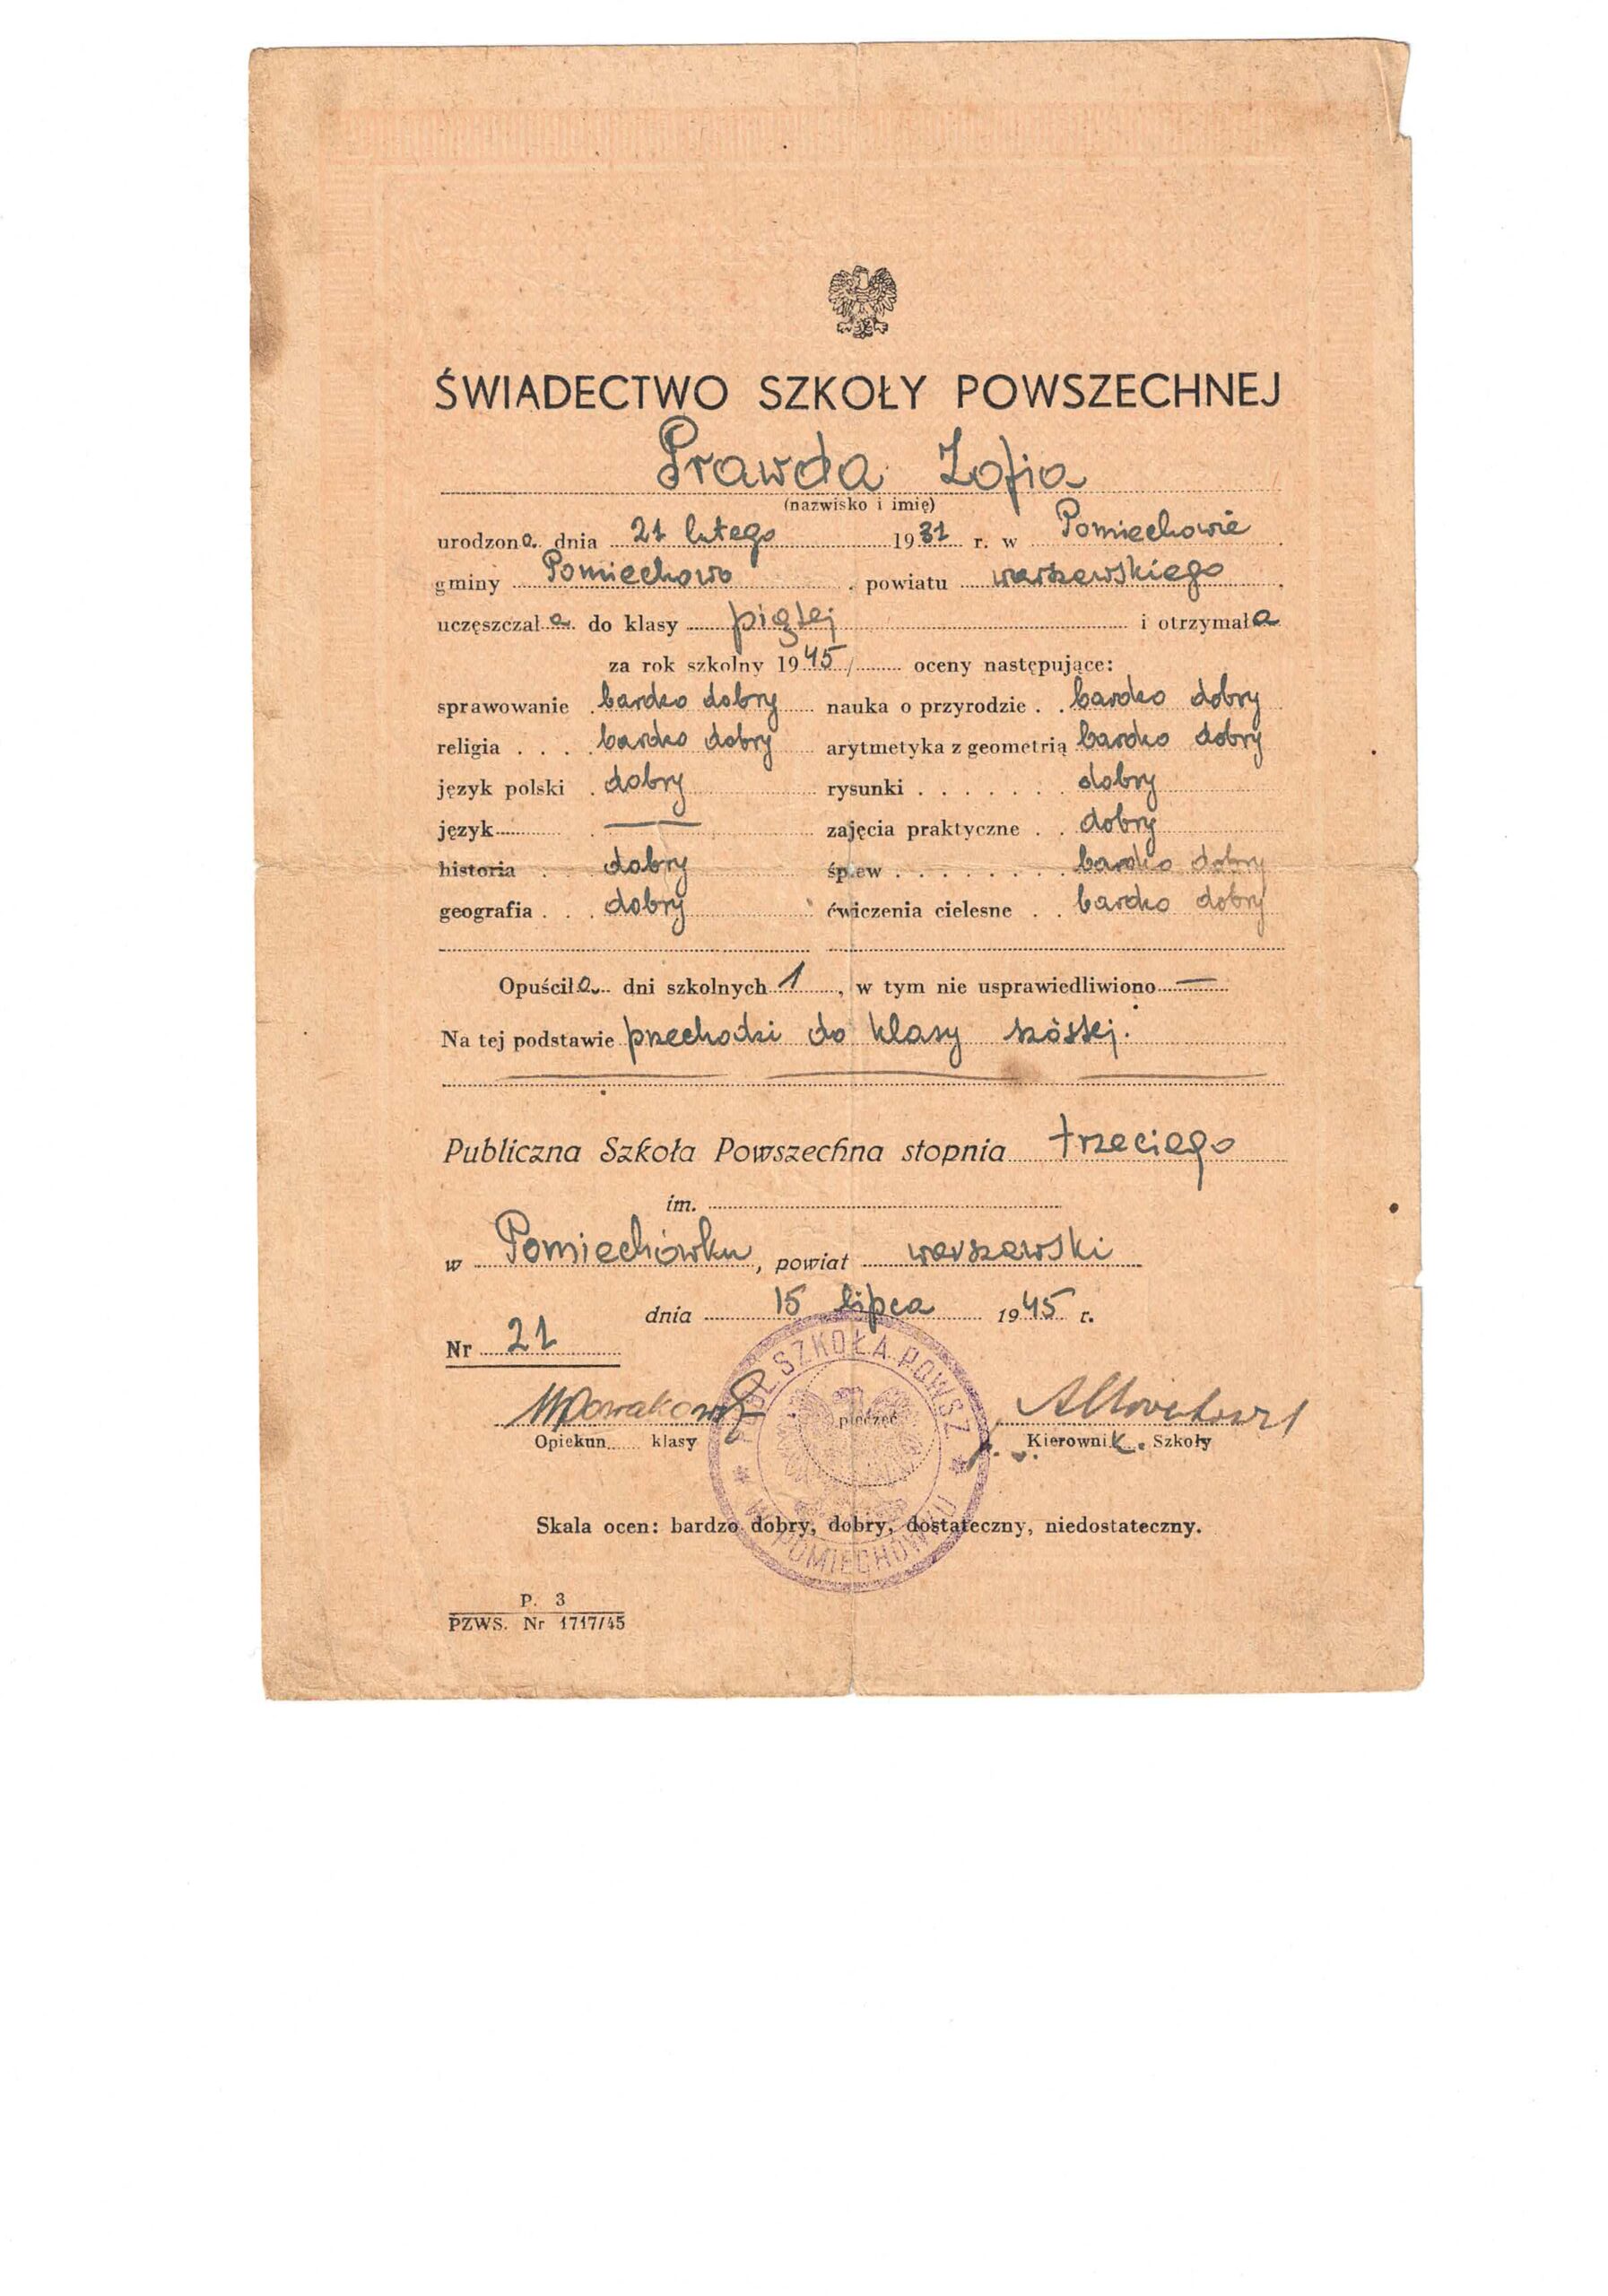 ŚWIADECTWO SZKOŁY POWSZECHNEJ
Prawda Zofia
(nazwisko i imię)
urodzona dnia 21 lutego 1931 r. w Pomiechowie
gminy Pomiechowo powiatu warszawskiego
uczęszczała do klasy piątej i otrzymała
za rok szkolny 1945/ oceny następujące:
sprawowanie bardzo dobry nauka o przyrodzie bardzo dobry
religia bardzo dobry arytmetyka z geometrią bardzo dobry
język polski dobry rysunki dobry
język — zajęcia praktyczne dobry
historia dobry śpiew bardzo dobry
geografia dobry ćwiczenia cielesne bardzo dobry
Opuściła dni szkolnych 1, w tym nie usprawiedliwiono —
Na tej podstawie przechodzi do klasy szóstej.
Publiczna Szkoła Powszechna stopnia trzeciego
im.
w Pomiechówku, powiat warszawski
dnia 15 lipca 1945 r.
Nr 21
PUBL. SZKOŁA POWSZ.
W POMIECHÓWKU
pieczęć
Opiekun klasy
Kierownik Szkoły
Skala ocen: bardzo dobry, dobry, dostateczny, niedostateczny.
P. 3
PZWS. Nr 1717/45